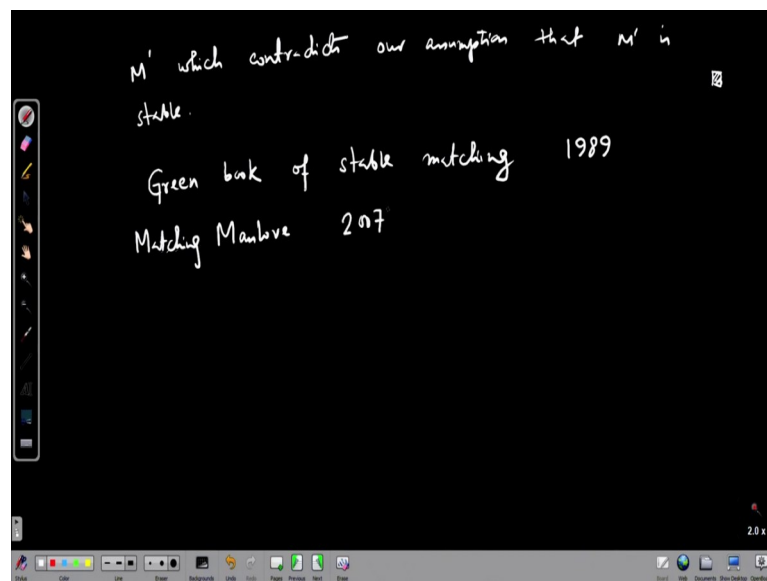 M' which contradicts our assumption that M' is
stable.
Green book of stable matching 1989
Matching Manlove 2007
2.0 x
Stylus Color Line Eraser Backgrounds Undo Redo Pages Previous Next Erase Board Web Documents Show Desktop